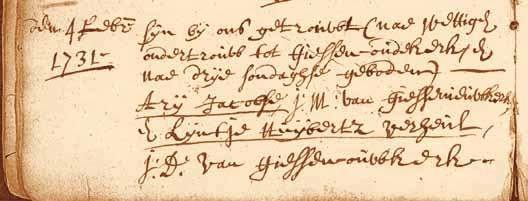 den 4 Febr: sijn bij ons getrouwt (nae wettige
1731 ondertrouw tot Giessen-oudekerk, en
nae drije sondaghse geboden)
Arij Jacobse j:M: van giessenieuwkerk,
en Lijntje Huijbertz verheul,
j:D: van giessen-ouwkerk.